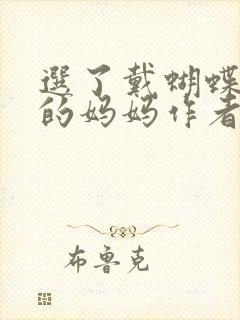 選了戴蝴蝶
的妈妈作者
布鲁克